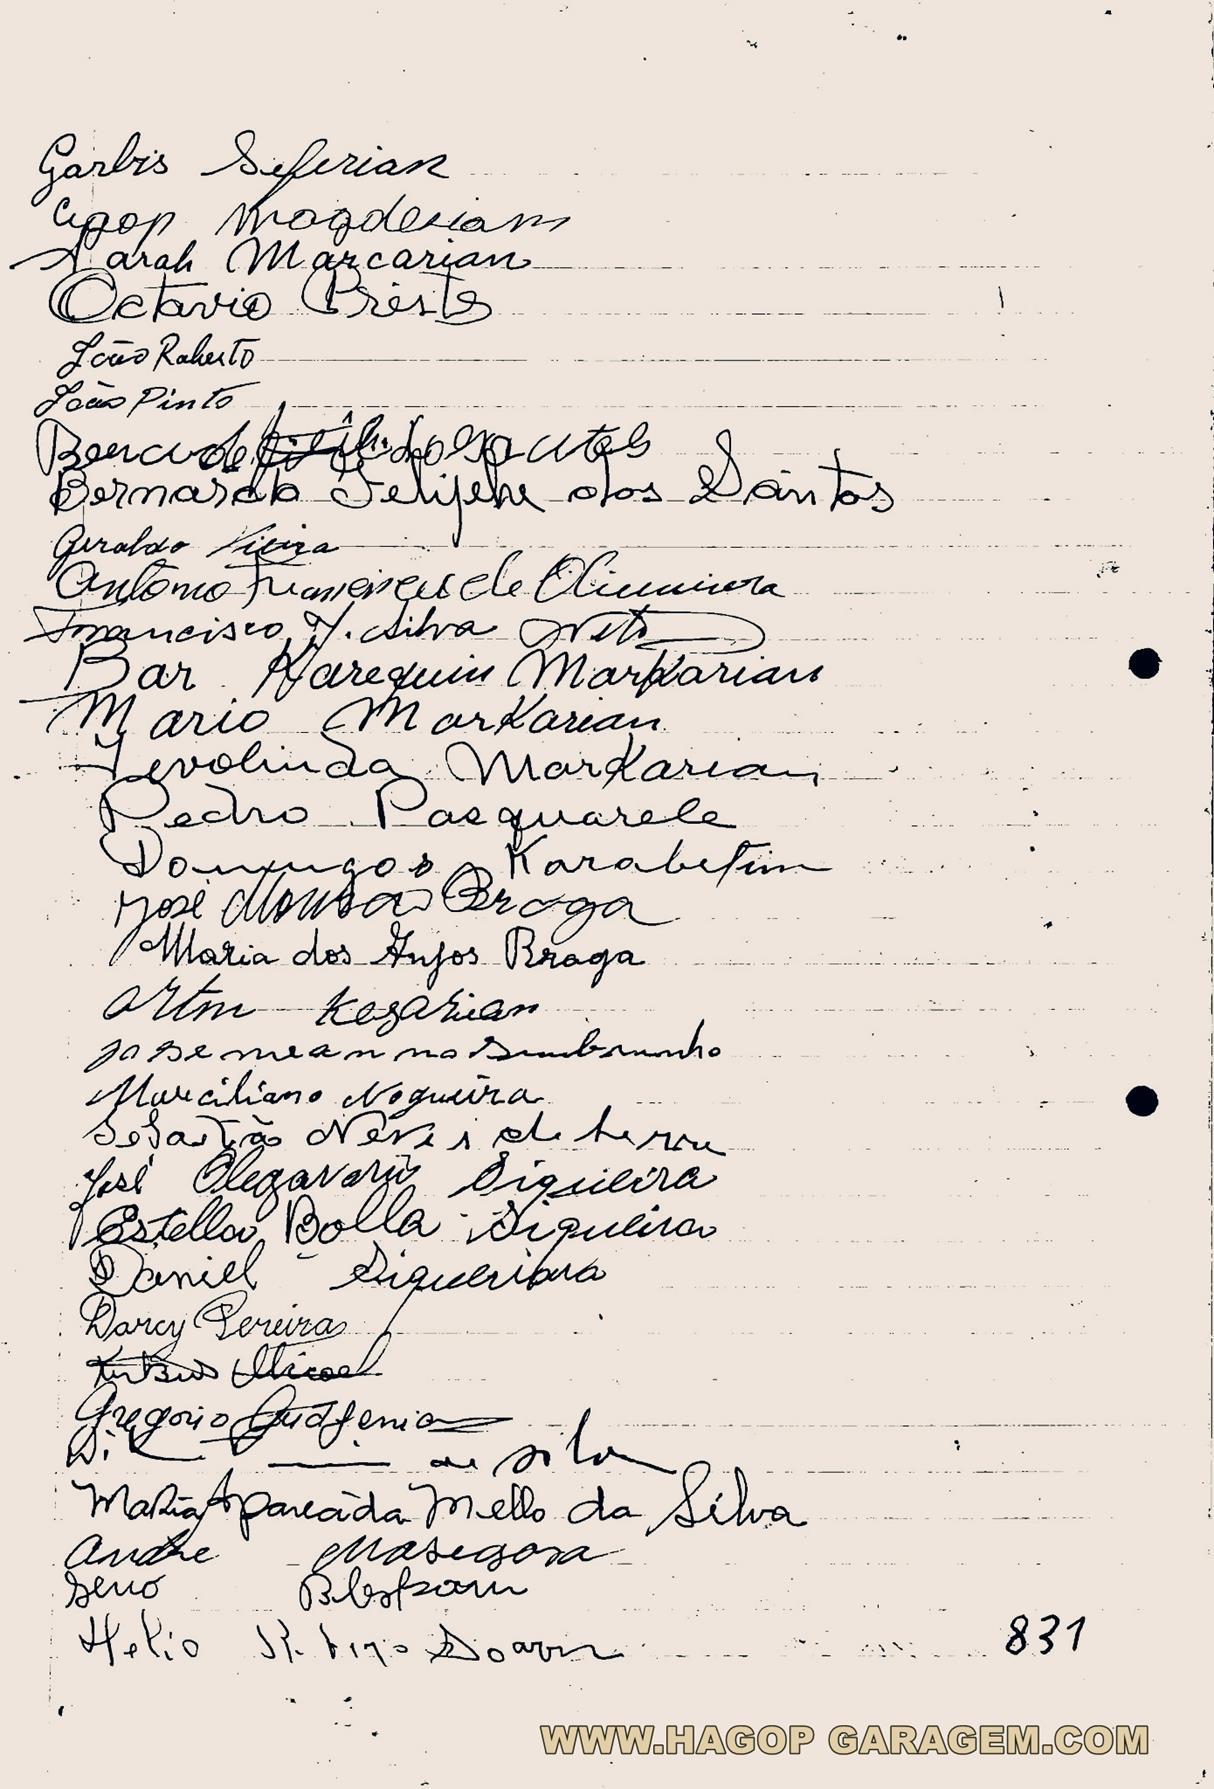 Garbis Seferian
Agop Magdesian
Sarah Marcarian
Octavio Prestes
João Roberto
João Pinto
Bernardo Felipehe dos Santos
Geraldo Vieira
Antonio Francisco de Oliveira
Francisco J. Silva Neto
Bar Karequin Markarian
Mario Markarian
Jevolinda Markarian
Pedro Pasquarele
Domingos Karabetim
José Braga
Maria dos Anjos Braga
Artin Kezarian
Marciliano Nogueira
Sebastião Neves
José Olegavario Siqueira
Estella Bolla Siqueira
Daniel Siqueira
Darcy Pereira
Gregorio
da Silva
Maria Aparecida Mello da Silva
Andre Masegosa
Helio
831
WWW.HAGOP GARAGEM.COM